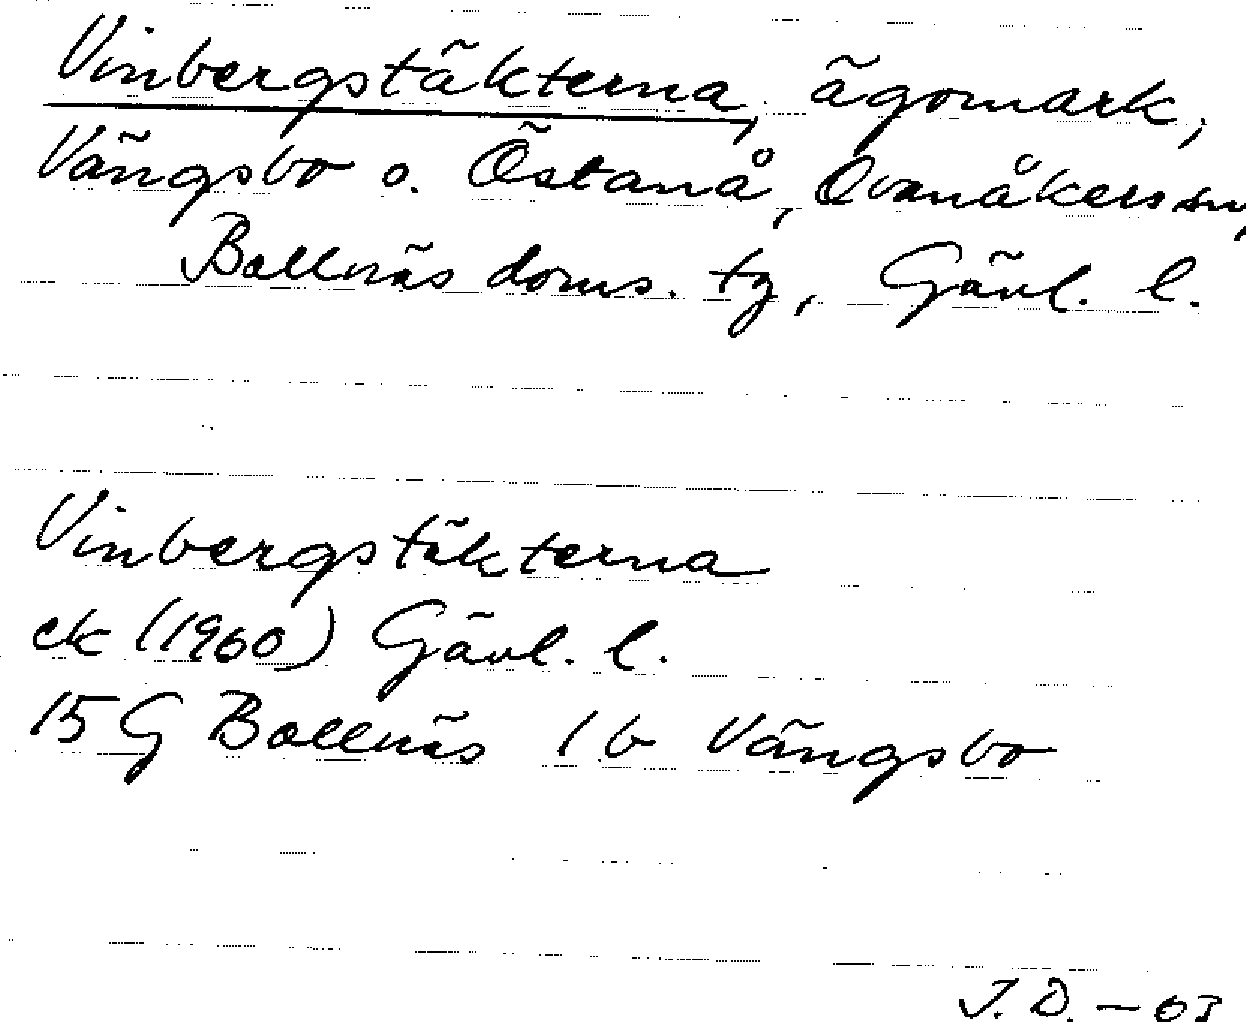 Vinbergstäkterna, ägomark,
Vängsbo o. Östanå, Ovanåkers sn,
Bollnäs doms. tg, Gävl. l.
Vinbergstäkterna
ek (1960) Gävl. l.
15 G Bollnäs 1b Vängsbo
J. D. – 03